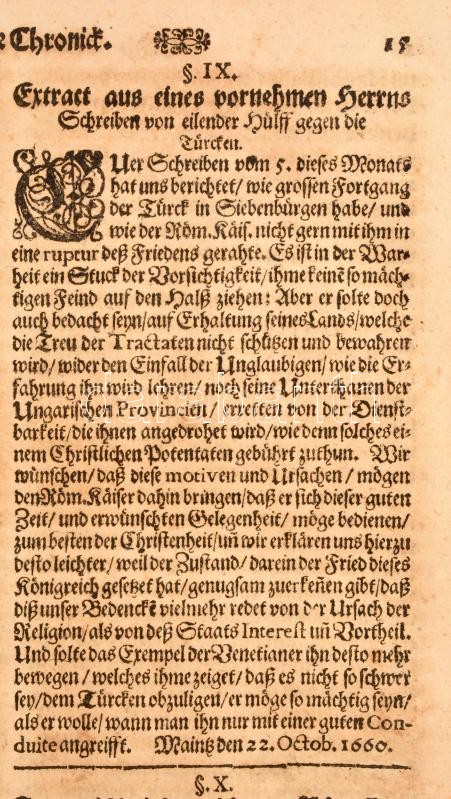 Chronick. 15
§. IX.
Extract aus eines vornehmen Herrns
Schreiben von eilender Hülff gegen die
Türcken.
EUer Schreiben vom 5. dieses Monats
hat uns berichtet/ wie grossen Fortgang
der Türck in Siebenbürgen habe/ und
wie der Röm. Käis. nicht gern mit ihm in
eine ruptur deß Friedens gerahte. Es ist in der War-
heit ein Stuck der Vorsichtigkeit/ ihme keinē so mäch-
tigen Feind auf den Halß ziehen: Aber er solte doch
auch bedacht seyn/ auf Erhaltung seines Lands/ welche
die Treu der Tractaten nicht schützen und bewahren
wird/ wider den Einfall der Unglaubigen/ wie die Er-
fahrung ihn wird lehren/ noch seine Unterthanen der
Ungarischen Provincien/ erretten von der Dienst-
barkeit/ die ihnen angedrohet wird/ wie denn solches ei-
nem Christlichen Potentaten gebührt zuthun. Wir
wünschen/ daß diese motiven und Ursachen/ mögen
den Röm. Käiser dahin bringen/ daß er sich dieser guten
Zeit/ und erwünschten Gelegenheit/ möge bedienen/
zum besten der Christenheit/ uñ wir erklären uns hierzu
desto leichter/ weil der Zustand/ darein der Fried dieses
Königreich gesetzet hat/ genugsam zuerkeñen gibt/ daß
diß unser Bedenckē vielmehr redet von der Ursach der
Religion/ als von deß Staats Interest uñ Vortheil.
Und solte das Exempel der Venetianer ihn desto mehr
bewegen/ welches ihme zeiget/ daß es nicht so schwer
sey/ dem Türcken obzuligen/ er möge so mächtig seyn/
als er wolle/ wann man ihn nur mit einer guten Con-
duite angreifft. Maintz den 22. Octob. 1660.
§. X.